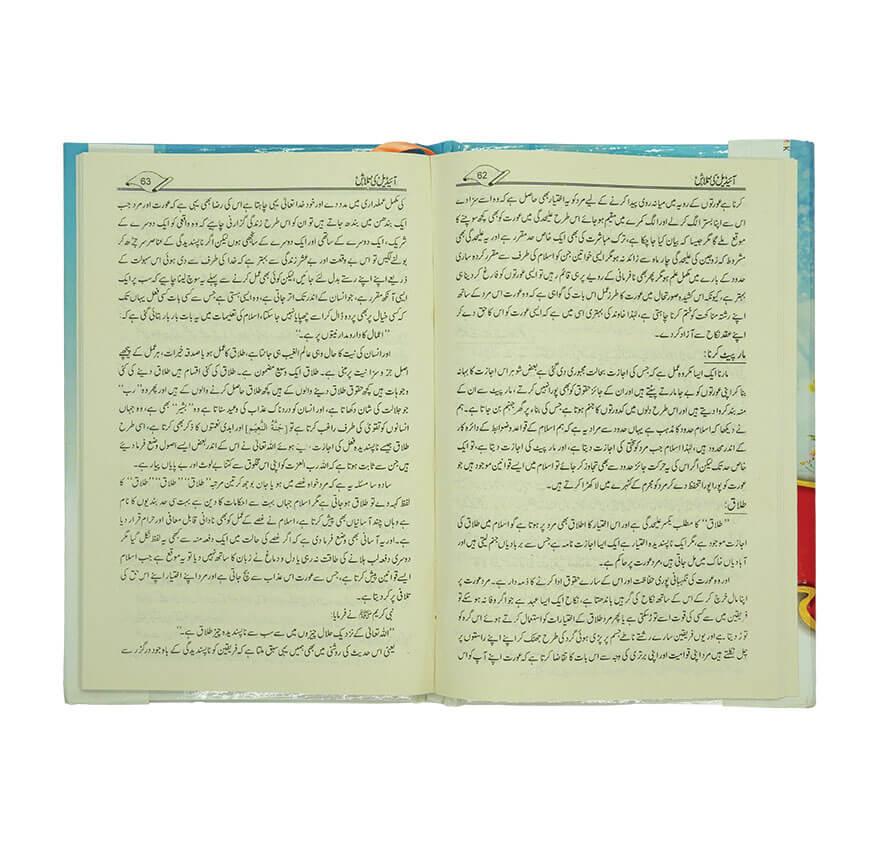 62
آئیڈیل کی تلاش
کرنا ہے عورتوں کے رویہ میں میانہ روی پیدا کرنے کے لیے مرد کو یہ اختیار بھی حاصل ہے کہ وہ اسے سزا دے
اس سے اپنا بستر الگ کرلے اور الگ کمرے میں مقیم ہو جائے اس طرح علیحدگی میں عورت کو بھی کچھ سوچنے کا
موقع ملے گا مگر جیسا کہ بیان کیا جا چکا ہے، ترک مباشرت کی بھی ایک خاص حد مقرر ہے اور یہ علیحدگی بھی
مشروط کہ زوجین کی علیحدگی چار ماہ سے زائد نہ ہو مگر ایسی خواتین جن کو اسلام کی طرف سے مقرر کردہ ساری
حدود کے بارے میں مکمل علم ہو مگر پھر بھی نافرمانی کے رویے پر ہی قائم رہیں تو ایسی عورتوں کو فارغ کر دینا ہی
بہتر ہے، کیونکہ اس کشیدہ صورتحال میں عورت کا طرز عمل اس بات کی گواہی ہے کہ وہ عورت اس مرد کے ساتھ
اپنے رشتہ مناکحت کو ختم کرنا چاہتی ہے، لہٰذا خاوند کی بہتری اسی میں ہے کہ ایسی عورت کو اس کا حق دے کر
اپنے عقد نکاح سے آزاد کر دے۔
مار پیٹ کرنا:
مارنا ایک ایسا مکروہ عمل ہے کہ جس کی اجازت بحالت مجبوری دی گئی ہے بعض شوہر اس اجازت کا بہانہ
بنا کر اپنی عورتوں کو بے جا مارتے پیٹتے ہیں اور ان کے جائز حقوق کو بھی پورا نہیں کرتے، مار پیٹ سے ان کے
منہ بند کروا دیتے ہیں اور اس طرح دلوں میں کدورتوں کا جنم ہوتا ہے جس کی بناء پر گھر جہنم بن جاتا ہے۔ ہم
نے دیکھا کہ اسلام حدود کا مذہب ہے یہاں حدود سے مراد یہ ہے کہ ہم اسلام کے قواعد و ضوابط کے دائرہ کار
کے اندر محدود ہیں، لہٰذا اسلام جب مرد کو سختی کی اجازت دیتا ہے، اور مار پیٹ کی اجازت دیتا ہے، تو ایک
خاص حد تک لیکن اگر اس کی یہ حرکت جائز حدود سے بھی تجاوز کر جائے تو اسلام میں ایسے قوانین موجود ہیں جو
عورت کو پورا پورا تحفظ دے کر مرد کو مجرم کے کٹہرے میں لا کھڑا کرتے ہیں۔
طلاق:
”طلاق“ کا مطلب یکسر علیحدگی ہے اور اس اختیار کا اطلاق بھی مرد پر ہوتا ہے گو اسلام میں طلاق کی
اجازت موجود ہے، مگر ایک ناپسندیدہ اختیار ہے ایک ایسا اجازت نامہ ہے جس سے بربادیاں جنم لیتی ہیں اور
آبادیاں خاک میں مل جاتی ہیں، مرد عورت پر حاکم ہے۔
اور وہ عورت کی نگہبانی پوری حفاظت اور اس کے سارے حقوق ادا کرنے کا ذمہ دار ہے۔ مرد عورت پر
اپنا مال خرچ کر کے اس کے ساتھ نکاح کی گرہیں باندھتا ہے، نکاح ایک ایسا عہد ہے جو اگر وفا نہ ہو سکے تو
فریقین میں سے کسی کی قوت اسے توڑ سکتی ہے یا پھر مرد طلاق کے اختیارات کو استعمال کرتے ہوئے اس گرہ کو
توڑ دیتا ہے اور یوں فریقین سارے رشتے ناطے جسم پر پڑی ہوئی گرد کی طرح جھٹک کر اپنے اپنے راستوں پر
چل نکلتے ہیں مرد اپنی قوامیت اور اپنی برتری کی وجہ سے اس بات کا تقاضا کرتا ہے کہ عورت اپنے آپ کو اس
63
آئیڈیل کی تلاش
کی مکمل عملداری میں مدد دے اور خود خدا تعالیٰ یہی چاہتا ہے اس کی رضا بھی یہی ہے کہ عورت اور مرد جب
ایک بندھن میں بندھ جاتے ہیں تو ان کو اس طرح زندگی گزارنی چاہئے کہ وہ واقعی کو ایک دوسرے کے
شریک، ایک دوسرے کے ساتھی اور ایک دوسرے کے سنجھی ہوں لیکن اگر ناپسندیدگی کے عناصر سر چڑھ کر
بولنے لگیں تو اس بے وقعت اور بے عشر زندگی سے بہتر ہے کہ خدا کی طرف سے دی ہوئی اس سہولت کے
ذریعے اپنے اپنے رستے بدل لئے جائیں، لیکن کوئی بھی عمل کرنے سے پہلے یہ سوچ لینا چاہیے کہ سب پر ایک
ایسی آنکھ مقرر ہے، جو انسان کے اندر تک اتر جاتی ہے، وہ ایسی ہستی ہے جس سے کسی بات کسی فعل یہاں تک
کہ کسی خیال پر بھی پردہ ڈال کر اسے چھپایا نہیں جا سکتا، اسلام کی تعلیمات میں یہ بات بار بار بتائی گئی ہے کہ:
”اعمال کا دارومدار نیتوں پر ہے۔“
اور انسان کی نیت کا حال وہی عالم الغیب ہی جانتا ہے، طلاق کا عمل ہو یا صدقہ خیرات، ہر عمل کے پیچھے
اصل جزو سزا نیت پر مبنی ہے۔ طلاق ایک وسیع مضمون ہے۔ طلاق کی کئی اقسام ہیں طلاق دینے کی کئی
وجوہات ہیں کچھ حقوق طلاق دینے والوں کے ہیں کچھ طلاق حاصل کرنے والوں کے ہیں اور پھر وہ ”رب“
جو جلالت کی شان دکھاتا ہے، اور انسان کو دردناک عذاب کی وعید سناتا ہے وہ ”بشیر“ بھی ہے، وہ جہاں
انسانوں کو تقویٰ کی طرف راغب کرتا ہے [جَنَّةُ النَّعِيْمِ] اور ابدی نعمتوں کا ذکر بھی کرتا ہے، اسی طرح
طلاق جیسے ناپسندیدہ فعل کی اجازت دیتے ہوئے اللہ تعالیٰ نے اس کے اندر بعض ایسے اصول وضع فرما دیئے
ہیں جن سے ثابت ہوتا ہے کہ اللہ رب العزت کو اپنی اس مخلوق سے کتنا بے لوث اور بے پایاں پیار ہے۔
سادہ سا مسئلہ یہ ہے کہ مرد خواہ غصے میں ہو یا جان بوجھ کر تین مرتبہ ”طلاق“ ”طلاق“ ”طلاق“ کا
لفظ کہہ دے تو طلاق ہو جاتی ہے مگر اسلام جہاں بہت سے احکامات کا دین ہے بہت سی حد بندیوں کا نام
ہے وہاں چند آسانیاں بھی پیش کرتا ہے، اسلام نے غصے کے عمل کو بھی نادانی قابل معافی اور حرام قرار دیا
ہے۔ اور یہ آسانی بھی وضع فرما دی ہے کہ اگر غصے کی حالت میں ایک دفعہ منہ سے کبھی یہ لفظ نکل گیا مگر
دوسری دفعہ لب ہلانے کی طاقت نہ رہی یا دل و دماغ نے زبان کا ساتھ نہیں دیا تو یہ موقع ہے جب اسلام
ایسے قوانین پیش کرتا ہے، جس سے عورت اس عذاب سے بچ جاتی ہے اور مرد اپنے اختیار اپنے اس حق کی
تلافی پر کر دیتا ہے۔
نبی کریم ﷺ نے فرمایا:
”اللہ تعالیٰ کے نزدیک حلال چیزوں میں سے سب سے ناپسندیدہ چیز طلاق ہے۔“
یعنی اس حدیث کی روشنی میں بھی ہمیں یہی سبق ملتا ہے کہ فریقین کو ناپسندیدگی کے باوجود درگزر سے